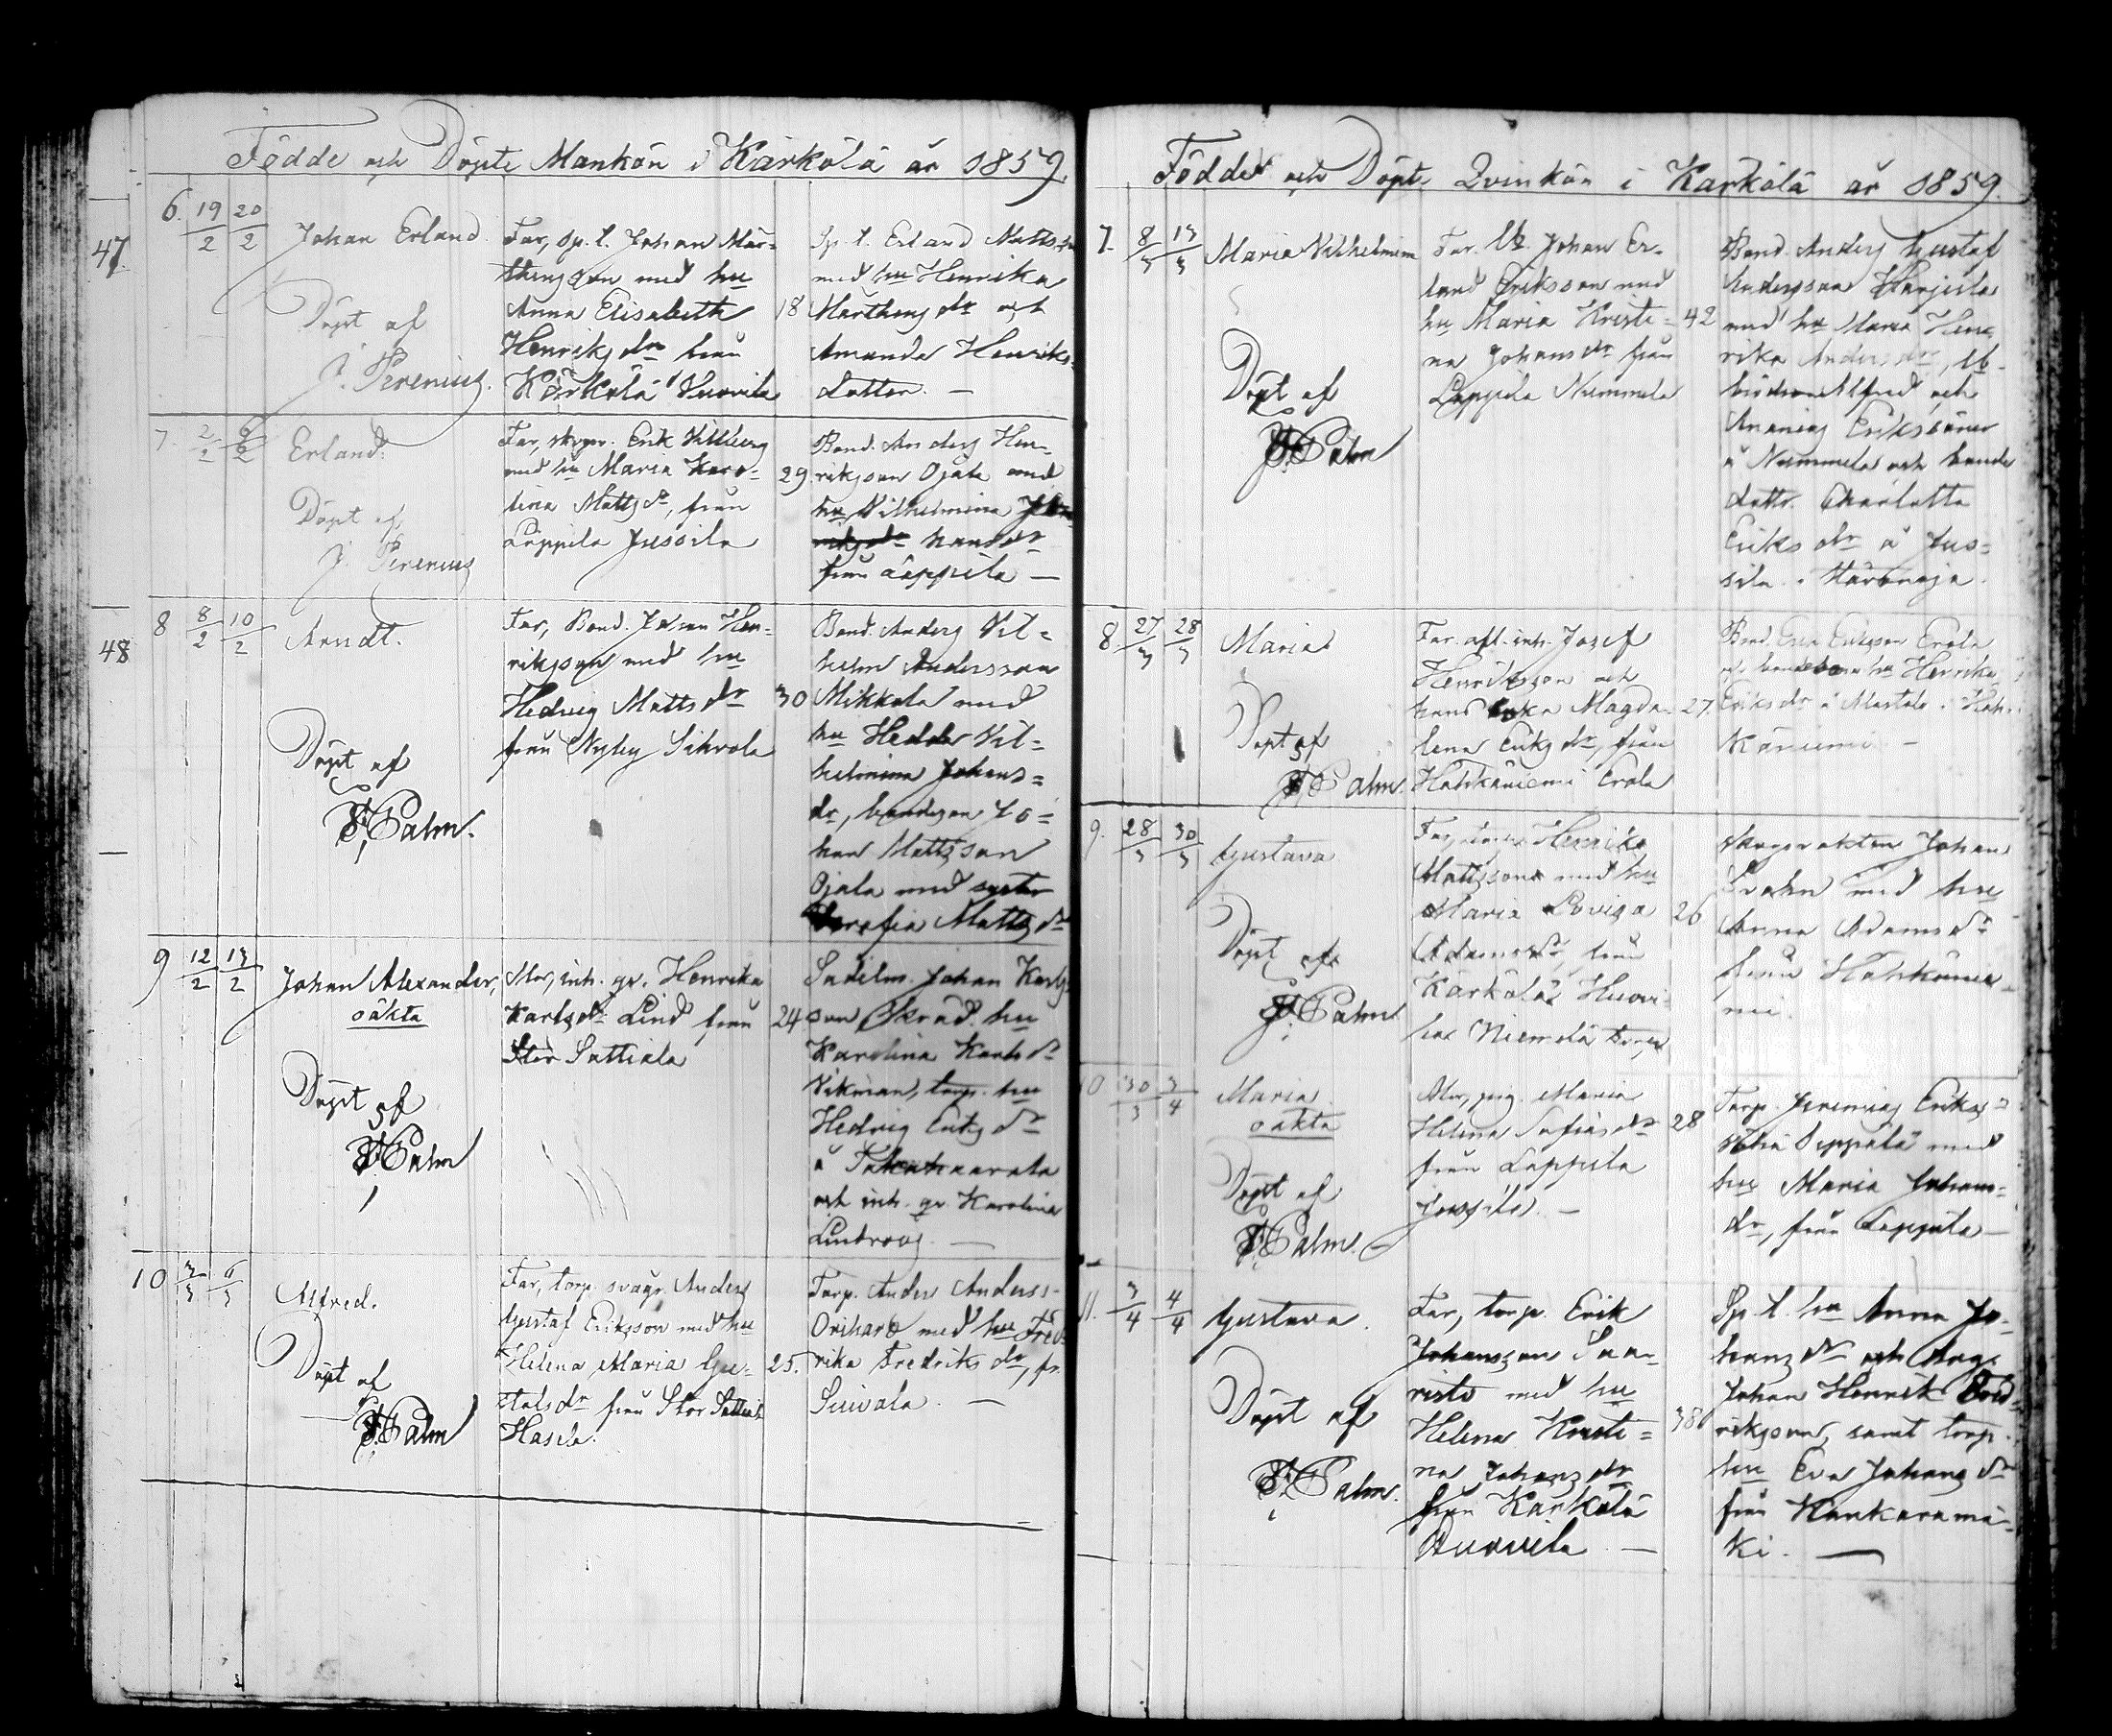 Födde och Döpte Mankön i Kärkölä år 1859.
47
6. 19/2 20/2
Johan Erland.
Döpt af
J. Perenius.
Far, sp. l. Johan Mår-
thensson med hu
Anna Elisabeth
Henriks dr från
Kärkölä Vuovila
18
Sp. l. Erland Matts son
med hu Henrika
Mårthens dr och
Amanda Henriks-
dotter. —
7. 2/2 6/2
Erland.
Döpt af
J. Perenius
Far, Erik Villberg
med hu Maria Karo-
lina Matts dr, från
Lappila Jussila
29
Bond. Anders Hen-
riksson Ojala med
hu Vilhelmina
hans dr
från Lappila —
48
8 8/2 10/2
Arndt.
Döpt af
Palm.
Far, Bond. Johan Hen-
riksson med hu
Hedvig Matts dr
från Nyby Sikvola
30
Bond. Anders Vil-
helm Andersson
Mikkola med
hu Hedda Vil-
helmina Johans-
dr, bondeson Jo-
han Mattsson
Ojala med syster
Serafia Matts dr
9 12/2 13/2
Johan Alexander,
oäkta
Döpt af
Palm
Mor, inh. qv. Henrika
Karls dr Lind från
Stor Sattiala
24
Sadelm. Johan Karls-
son Skräd. hu
Karolina Karls dr
Vikman, torp. hu
Hedvig Eriks dr
å
och inh. qv. Karolina
Lindroos. —
10 3/3 6/3
Alfred.
Döpt af
Palm
Far, torp. svåger Anders
Gustaf Eriksson med hu
Helena Maria Gu-
stafs dr från Stor Sattiala
Hasela.
25.
Torp. Anders Anderss-
Orihara med hu Fred-
rika Fredriks dr, fr.
Suivala. —
Födde och Döpte Qvinkön i Kärkölä år 1859.
7. 8/3 13/3
Maria Vilhelmina
Döpt af
Palm
Far. Johan Er-
land Eriksson med
hu Maria Kristi-
na Johans dr från
Lappila Nummela
42
Bond. Anders Gustaf
Andersson Harjula
med hu Maria Hen-
rika Anders dr,
Alfred och
Ananias Erikssöner
å Nummela och bonde
dottr. Charlotta
Eriks dr å Jus-
sila i Maronaja.
8. 27/3 28/3
Maria
Döpt af
Palm.
Far. afl. inh. Josef
Henriksson och
hans enka Magda-
lena Eriks dr, från
Hahkaniemi Erola
27.
Bond. Erik Eriksson Erola
och hu Henrika
Eriks dr å Mattila i Hah-
kaniemi —
9. 28/3 30/3
Gustava
Döpt af
Palm.
Far, Henrik
Mattsson med hu
Maria Lovisa
Adams dr, från
Kärkölä Huovi-
la Niemelä torp
26
Skogvaktare Johan
Svahn med hu
Anna Adams dr
från Hahkanie-
mi.
10 30/3 3/4
Maria.
oäkta
Döpt af
Palm. —
Mor, pig. Maria
Helena Safias dr
från Lappila
Jussila. —
28
Torp. Jeremias Eriks-
son Seppälä med
hu Maria Johans-
dr, från Lappila —
11. 3/4 4/4
Gustava.
Döpt af
Palm.
Far, torp. Erik
Johansson Saa-
risto med hu
Helena Kristi-
na Johans dr
från Kärkölä
Vuovila —
38
Sp. l. hu Anna Jo-
hans dr och drag.
Johan Henrik Fred-
riksson, samt torp.
hu Eva Johans dr
från Kankaramä-
ki. —